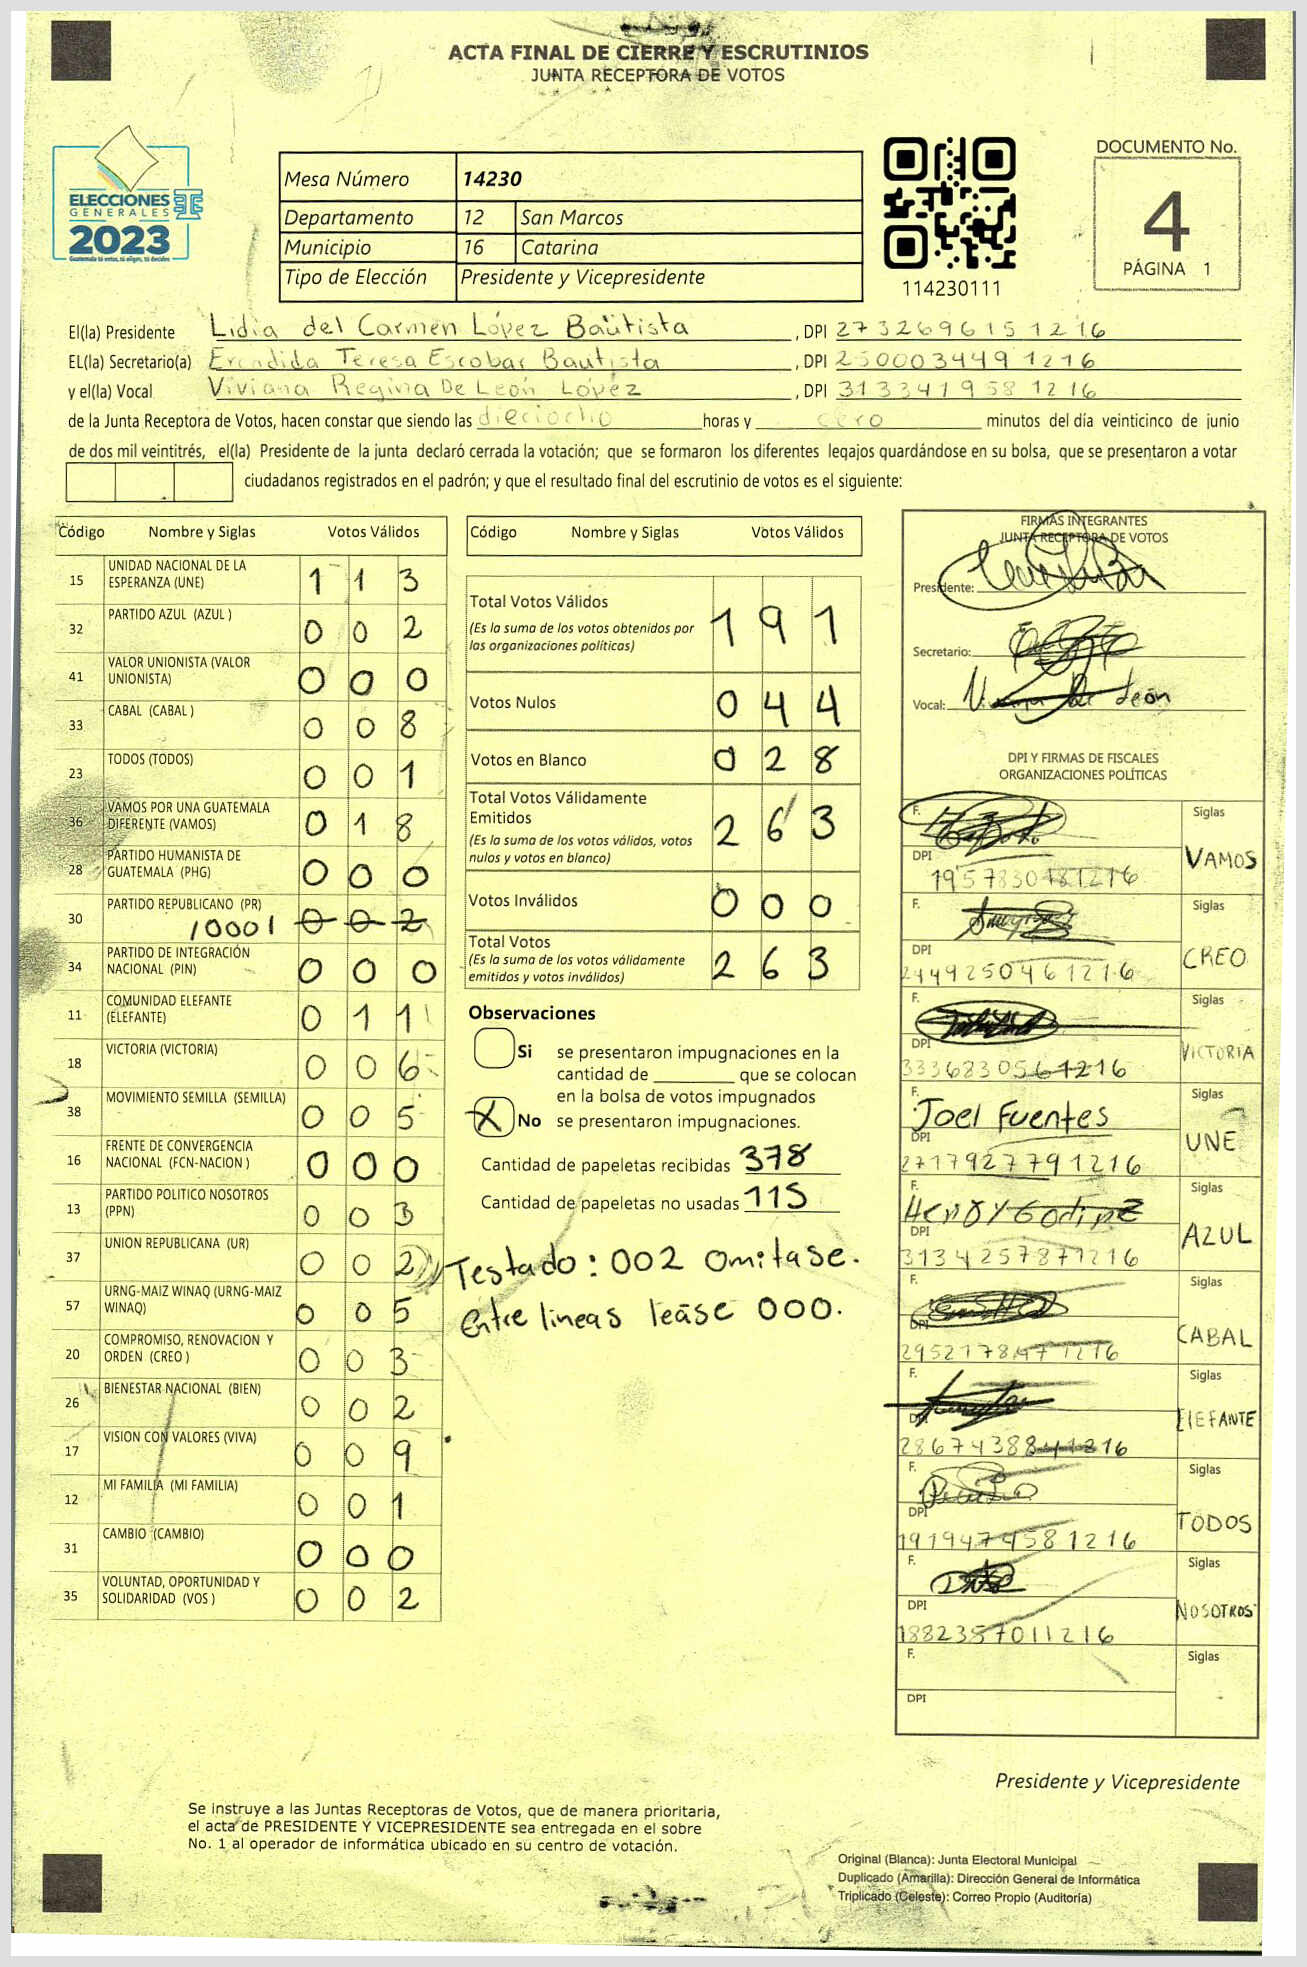 ACTA FINAL DE CIERRE Y ESCRUTINIOS
JUNTA RECEPTORA DE VOTOS
ELECCIONES
GENERALES
2023
Guatemala tú votas, tú eliges, tú decides
Mesa Número 14230
Departamento 12 San Marcos
Municipio 16 Catarina
Tipo de Elección Presidente y Vicepresidente
114230111
DOCUMENTO No.
4
PÁGINA 1
El(la) Presidente Lidia del Carmen López Bautista, DPI 2732696151216
EL(la) Secretario(a) Erendida Teresa Escobar Bautista, DPI 2500034491216
y el(la) Vocal Viviana Regina De León López, DPI 3133419581216
de la Junta Receptora de Votos, hacen constar que siendo las dieciocho horas y cero minutos del día veinticinco de junio
de dos mil veintitrés, el(la) Presidente de la junta declaró cerrada la votación; que se formaron los diferentes legajos guardándose en su bolsa, que se presentaron a votar
ciudadanos registrados en el padrón; y que el resultado final del escrutinio de votos es el siguiente:
Código Nombre y Siglas Votos Válidos
15 UNIDAD NACIONAL DE LA ESPERANZA (UNE) 1 1 3
32 PARTIDO AZUL (AZUL ) 0 0 2
41 VALOR UNIONISTA (VALOR UNIONISTA) 0 0 0
33 CABAL (CABAL ) 0 0 8
23 TODOS (TODOS) 0 0 1
36 VAMOS POR UNA GUATEMALA DIFERENTE (VAMOS) 0 1 8
28 PARTIDO HUMANISTA DE GUATEMALA (PHG) 0 0 0
30 PARTIDO REPUBLICANO (PR) 10001 0 0 2
34 PARTIDO DE INTEGRACIÓN NACIONAL (PIN) 0 0 0
11 COMUNIDAD ELEFANTE (ELEFANTE) 0 1 1
18 VICTORIA (VICTORIA) 0 0 6
38 MOVIMIENTO SEMILLA (SEMILLA) 0 0 5
16 FRENTE DE CONVERGENCIA NACIONAL (FCN-NACION ) 0 0 0
13 PARTIDO POLITICO NOSOTROS (PPN) 0 0 3
37 UNION REPUBLICANA (UR) 0 0 2
57 URNG-MAIZ WINAQ (URNG-MAIZ WINAQ) 0 0 5
20 COMPROMISO, RENOVACION Y ORDEN (CREO ) 0 0 3
26 BIENESTAR NACIONAL (BIEN) 0 0 2
17 VISION CON VALORES (VIVA) 0 0 9
12 MI FAMILIA (MI FAMILIA) 0 0 1
31 CAMBIO (CAMBIO) 0 0 0
35 VOLUNTAD, OPORTUNIDAD Y SOLIDARIDAD (VOS ) 0 0 2
Código Nombre y Siglas Votos Válidos
Total Votos Válidos 1 9 1
(Es la suma de los votos obtenidos por
las organizaciones políticas)
Votos Nulos 0 4 4
Votos en Blanco 0 2 8
Total Votos Válidamente
Emitidos 2 6 3
(Es la suma de los votos válidos, votos
nulos y votos en blanco)
Votos Inválidos 0 0 0
Total Votos 2 6 3
(Es la suma de los votos válidamente
emitidos y votos inválidos)
Observaciones
Si se presentaron impugnaciones en la
cantidad de ________ que se colocan
en la bolsa de votos impugnados
X No se presentaron impugnaciones.
Cantidad de papeletas recibidas 378
Cantidad de papeletas no usadas 115
Testado: 002 omitase.
Entre lineas lease 000.
FIRMAS INTEGRANTES
JUNTA RECEPTORA DE VOTOS
Presidente:
Secretario:
Vocal: de León
DPI Y FIRMAS DE FISCALES
ORGANIZACIONES POLÍTICAS
F. Siglas
DPI 1957830181216 VAMOS
F. Siglas
DPI 2449250461216 CREO
F. Siglas
DPI 3336830561216 VICTORIA
F. Joel Fuentes Siglas
DPI 2717927791216 UNE
F. Henry Godinez Siglas
DPI 3134257871216 AZUL
F. Siglas
DPI CABAL
F. Siglas
DPI ElEFANTE
F. Siglas
DPI 1919474581216 TODOS
F. Siglas
DPI 1882357011216 NOSOTROS
F. Siglas
DPI
Presidente y Vicepresidente
Se instruye a las Juntas Receptoras de Votos, que de manera prioritaria,
el acta de PRESIDENTE Y VICEPRESIDENTE sea entregada en el sobre
No. 1 al operador de informática ubicado en su centro de votación.
Original (Blanca): Junta Electoral Municipal
Duplicado (Amarilla): Dirección General de Informática
Triplicado (Celeste): Correo Propio (Auditoría)